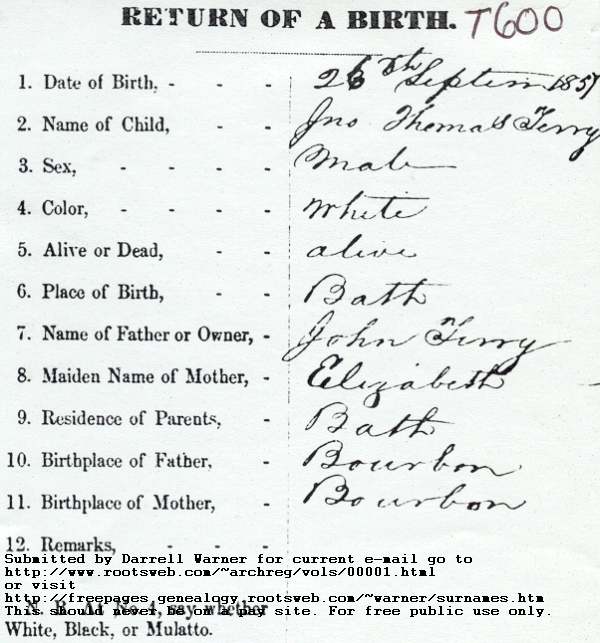 RETURN OF A BIRTH. T600
1. Date of Birth, - - - 26th Septem 1857
2. Name of Child, - - Jno Thomas Terry
3. Sex, - - - - Male
4. Color, - - - - White
5. Alive or Dead, - - alive
6. Place of Birth, - - Bath
7. Name of Father or Owner, - John Terry
8. Maiden Name of Mother, - Elizabeth
9. Residence of Parents, - Bath
10. Birthplace of Father, - Bourbon
11. Birthplace of Mother, - Bourbon
12. Remarks, - - -
Submitted by Darrell Warner for current e-mail go to
http://www.rootsweb.com/~archreg/vols/00001.html
or visit
http://freepages.genealogy.rootsweb.com/~warner/surnames.htm
This should never be on a pay site. For free public use only.
N. B. At No. 4, say whether
White, Black, or Mulatto.